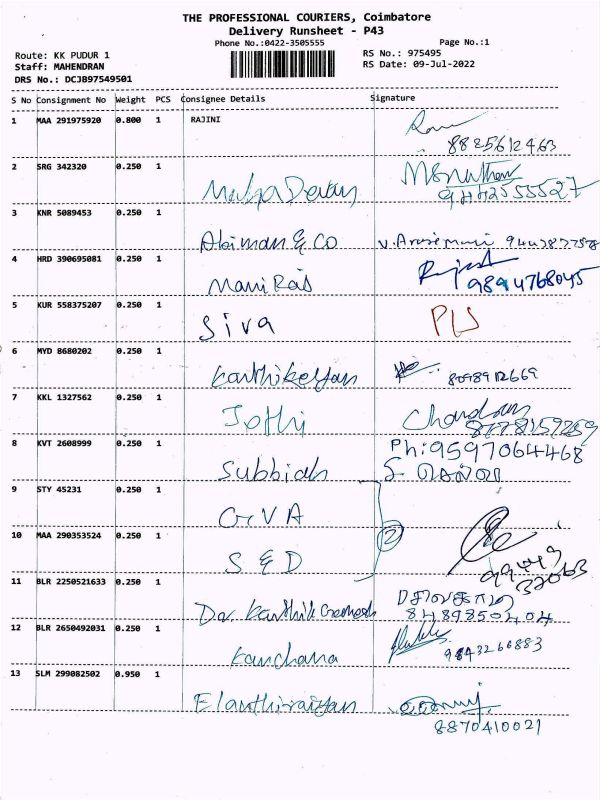 THE PROFESSIONAL COURIERS, Coimbatore
Delivery Runsheet - P43
Phone No.:0422-3505555
Page No.:1
Route: KK PUDUR 1
RS No.: 975495
Staff: MAHENDRAN
RS Date: 09-Jul-2022
DRS No.: DCJB97549501
S No Consignment No Weight PCS Consignee Details Signature
1 MAA 291975920 0.800 1 RAJINI
8825612463
2 SRG 342320 0.250 1
Mahadevan
3 KNR 5089453 0.250 1
Abiman & Co
4 HRD 390695081 0.250 1
Mani Raj 9894768045
5 KUR 558375207 0.250 1
Siva
6 MYD 8680202 0.250 1
Karthikeyan 8098912669
7 KKL 1327562 0.250 1
Jothi
8 KVT 2608999 0.250 1
Ph:9597064468
Subbiah
9 STY 45231 0.250 1
GVA
10 MAA 290353524 0.250 1
2
S & D
11 BLR 2250521633 0.250 1
Dr. Karthik Ganesh 8489850404
12 BLR 2650492031 0.250 1
Kanchana 9843266883
13 SLM 299082502 0.950 1
Elanthiraiyan
8870410021